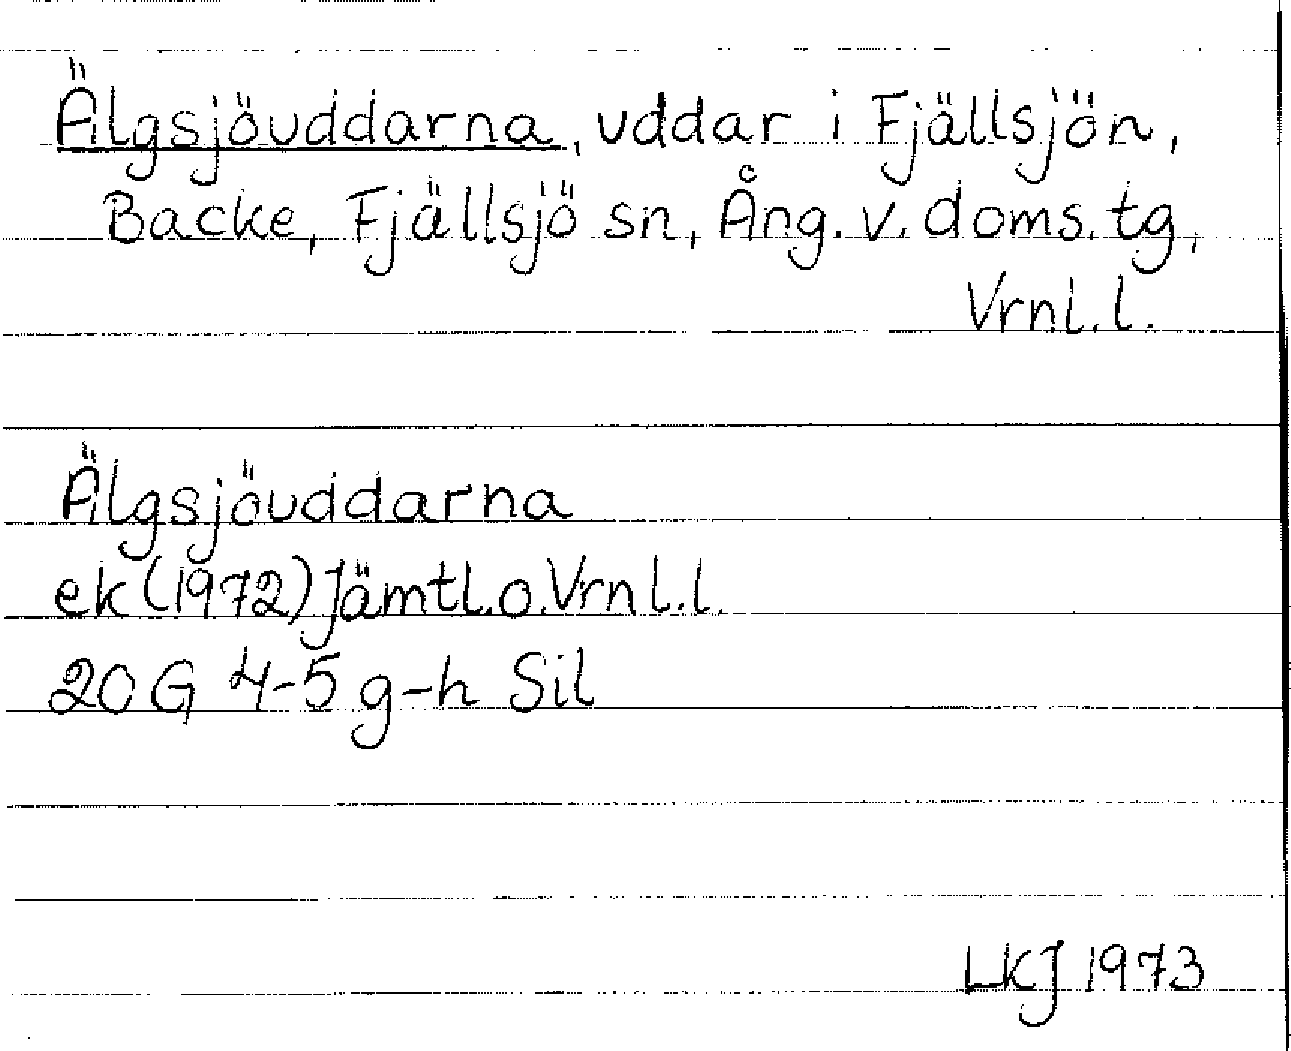 Älgsjöuddarna, uddar i Fjällsjön,
Backe, Fjällsjö sn, Ång. v. doms. tg,
Vrnl. l.
Älgsjöuddarna
ek (1972) Jämtl. o. Vrnl. l.
20 G 4-5 g-h Sil
LKJ 1973